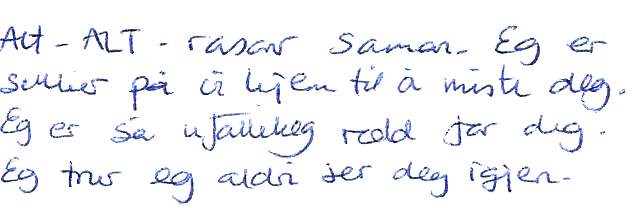 Alt - ALT - rasar saman. Eg er
sikker på vi kjem til å miste deg.
Eg er så ufatteleg redd for deg.
Eg trur eg aldri ser deg igjen.